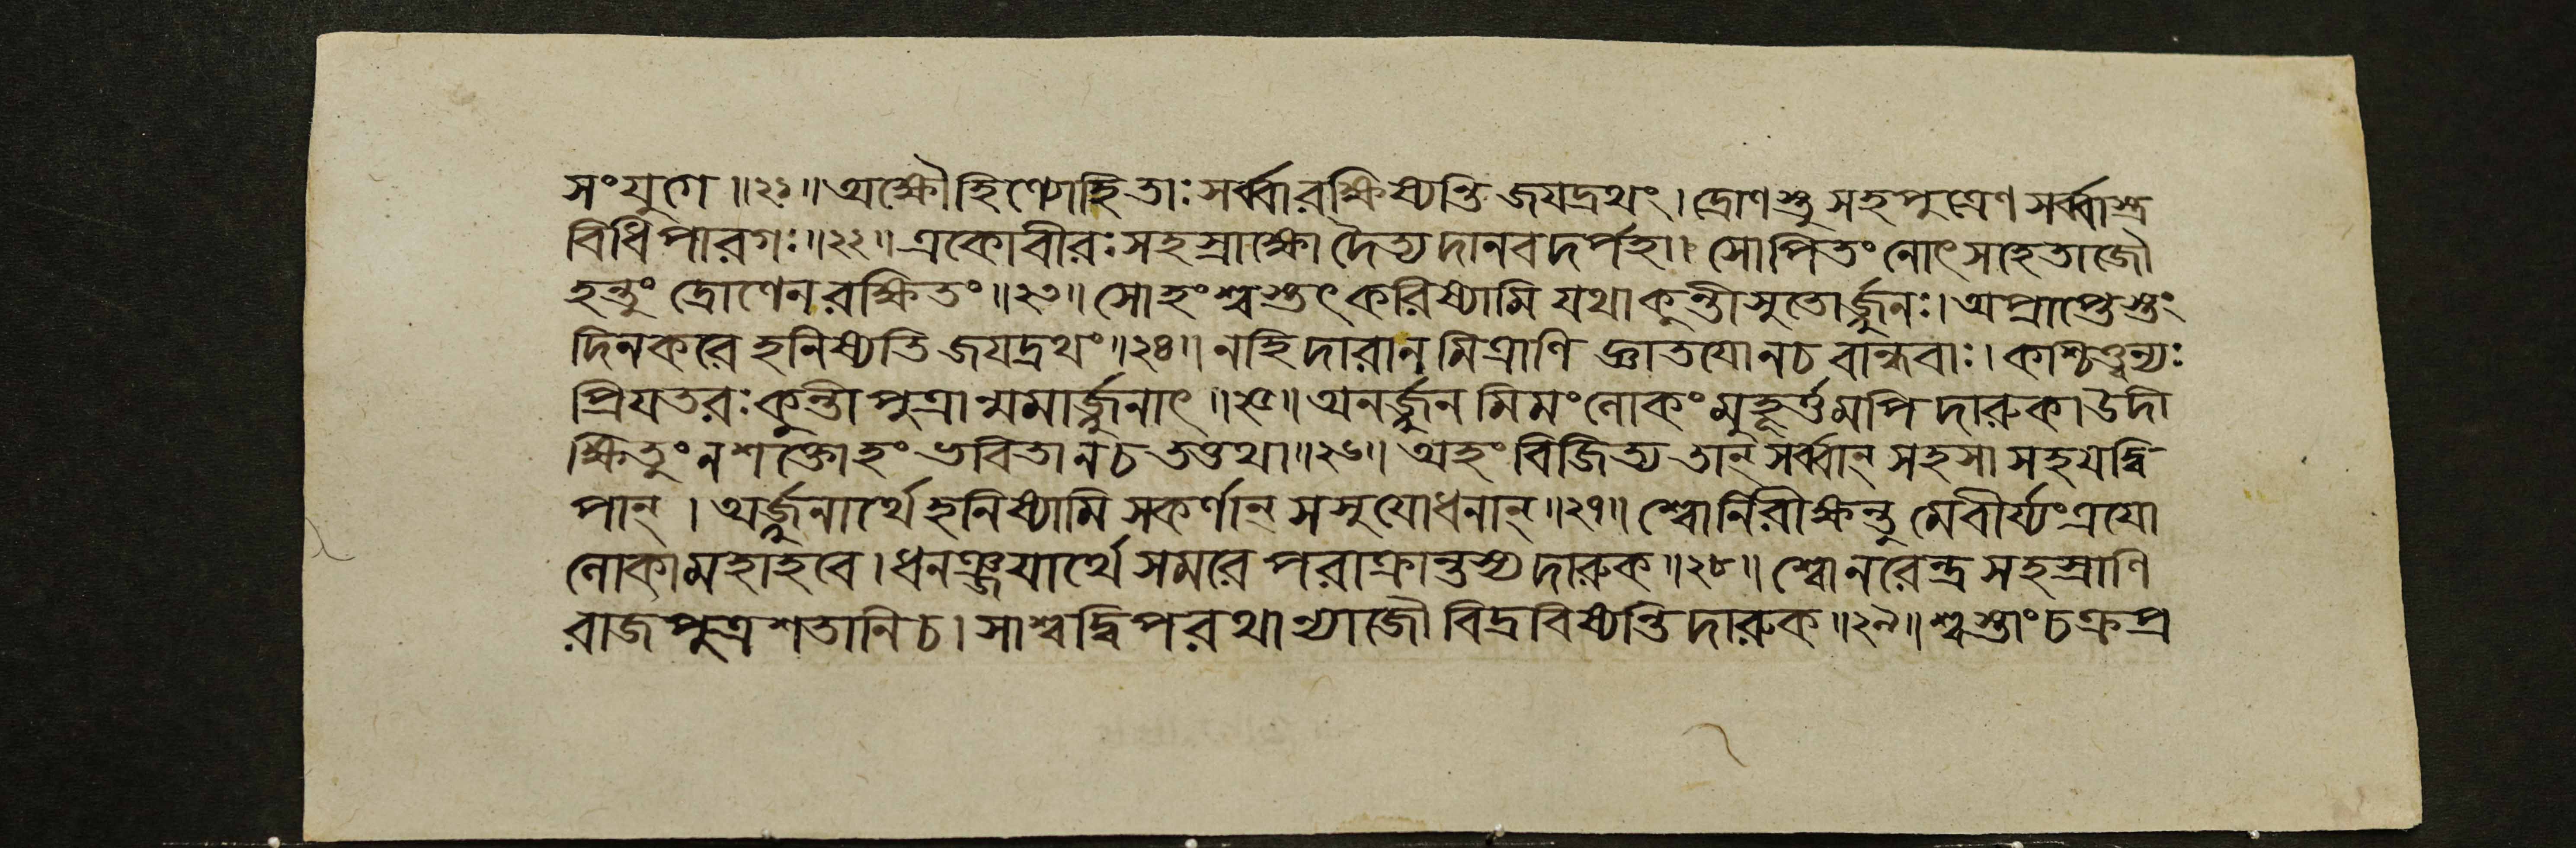 সংযুগে ॥২১॥ অক্ষৌহিণ্যোহিতাঃ সর্ব্বারক্ষিষ্যন্তি জযদ্রথং। দ্রোণস্তু সহপুত্রেণ সর্ব্বাস্ত্র
বিধিপারগঃ॥২২॥ একোবীরঃ সহস্রাক্ষো দৈত্যদানবদর্পহা। সোপিতং নোৎসহেতাজৌ
হন্তুং দ্রোণেন রক্ষিতং॥২৩॥ সোহংশ্বস্তৎ করিষ্যামি যথা কুন্তীসুতোর্জ্জুনঃ। অপ্রাপ্তেস্তং
দিনকরে হনিষ্যতি জযদ্রথং॥২৪॥ নহি দারা ন মিত্রাণি জ্ঞাতযো নচ বান্ধবাঃ। কাশ্চিত্ত্বন্যঃ
প্রিযতরঃ কুন্তীপুত্রান্মমার্জ্জুনাৎ॥২৫॥ অনর্জ্জুনমিমং লোকং মুহূর্ত্তমপি দারুক। উদী
ক্ষিতুং ন শক্তোহং ভবিতা নচ তত্তথা॥২৬॥ অহং বিজিত্য তান্ সর্ব্বান্ সহসা সহযদ্বি
পান্। অর্জ্জুনার্থে হনিষ্যামি সকর্ণান্ সসুযোধনান্॥২৭॥ শ্বোনিরীক্ষন্তু মে বীর্য্যং ত্রযো
লোকা মহাহবে। ধনঞ্জযার্থে সমরে পরাক্রান্তস্য দারুক॥২৮॥ শ্বোনরেন্দ্রসহস্রাণি
রাজপুত্রশতানি চ। সাশ্বদ্বিপরথাণ্যাজৌ বিদ্রবিষ্যন্তি দারুক॥২৯॥ শ্বস্তাং চক্রপ্র